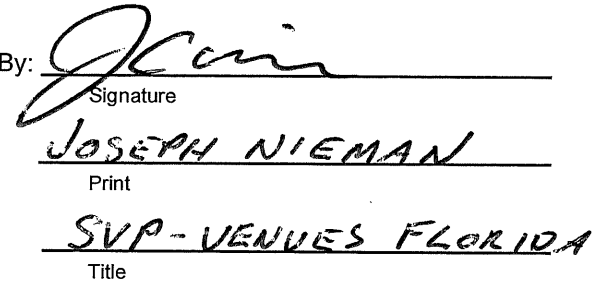 By:
Signature
JOSEPH NIEMAN
Print
SVP-VENUES FLORIDA
Title